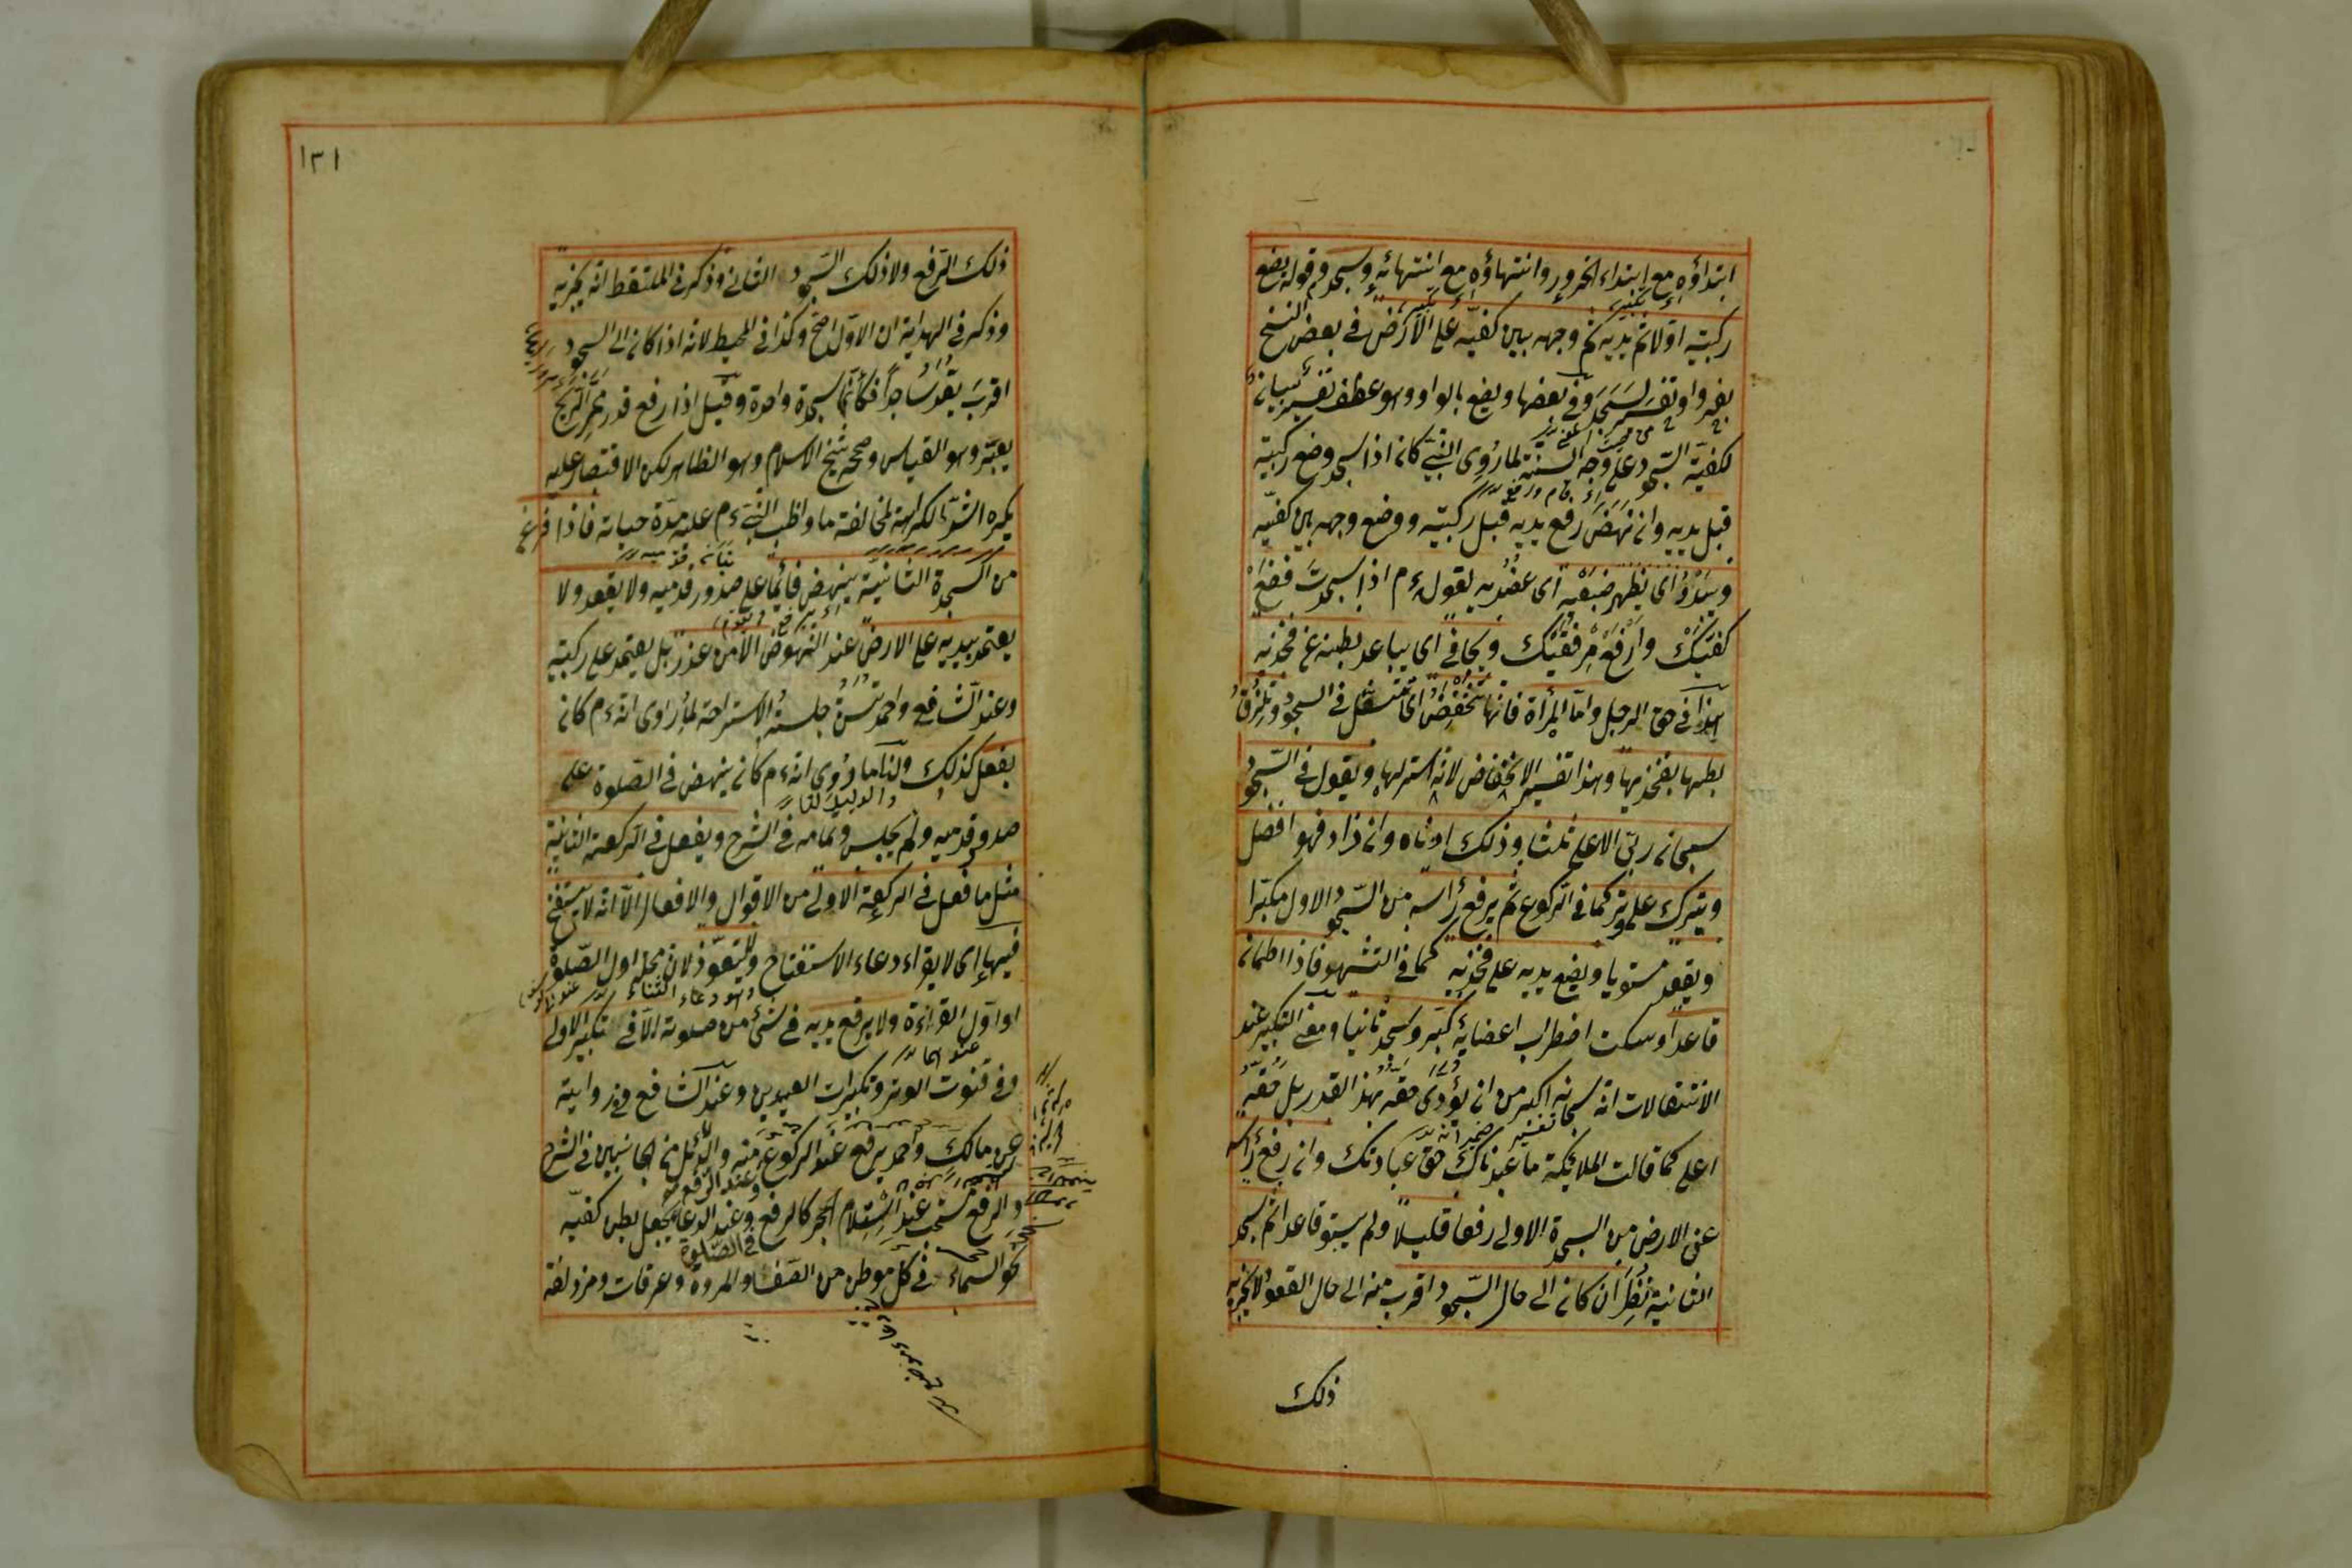 ابتداؤه مع ابتداء الخرور وانتهاؤه مع انتهائه وسجد وقوله يضع
ركبتيه اولا ثم يديه ثم وجهه بين كفيه على الارض في بعض النسخ
بغير واو تفسير لسجد وفي بعضها ويضع بالواو وهو عطف تفسير بيانا
لكفية السجود على وجه السنة لما روى النبي كان اذا سجد وضع ركبتيه
قبل يديه وان نهض رفع يديه قبل ركبتيه ووضع وجهه بين كفيه
ويبدؤ اى يظهر ضبعيه اى عضديه لقوله ءم اذا سجدت فضع
كفيك وارفع مرفقيك ويجافى اى يباعد بطنه عن فخذيه
هذا في حق الرجل واما المرأة فانها تنخفض اى تتسفل في السجود وتلزق
بطنها بفخذيها وهذا تفسير الانخفاض لانه استر لها ويقول في السجود
سبحان ربى الاعلى ثلثا وذلك ادناه وان زاد فهو افضل
ويترك على وتر كما في الركوع ثم يرفع رأسه من السجود الاول مكبرا
ويقعد مستويا ويضع يديه على فخذيه كما في التشهد فاذا اطمان
قاعدا وسكت اضطراب اعضائه كبر وسجد ثانيا ومعنى التكبير عند
الانتقالات انه سبحانه اكبر من ان يؤدى حقه بهذا القدر بل حقه
اعلى كما قالت الملائكة ما عبدناك حق عبادتك وان رفع رأسه
عن الارض من السجدة الاولى رفعا قليلا ولم يستو قاعدا ثم سجد
الثانية نظر ان كان الى حال السجود اقرب منه الى حال القعود لا يجزيه
ذلك
١٣١
ذلك الرفع ولا ذلك السجود الثانى وذكر في الملتقط انه يجزيه
وذكر في الهداية ان الاول اصح وكذا في المحيط لانه اذا كان الى السجود
اقرب يعد ساجدا فكأنما سجدة واحدة وقيل اذا رفع قدر ممر الريح
يعتبر وهو القياس وصححه شيخ الاسلام وهو الظاهر لكن الاقتصار عليه
يكره اشد الكراهة لمخالفة ما واظب النبي ءم عليه مدة حياته فاذا فرغ
من السجدة الثانية ينهض قائما على صدور قدميه ولا يقعد ولا
يعتمد بيديه على الارض عند النهوض الا من عذر بل يعتمد على ركبتيه
وعند الشافعى واحمد تسن جلسة الاستراحة لما روى انه ءم كان
يفعل كذلك ولنا ما روى انه ءم كان ينهض في الصلوة على
والدليل لنا
صدور قدميه ولم يجلس وتمامه في الشرح ويفعل في الركعة الثانية
مثل ما فعل في الركعة الاولى من الاقوال والافعال الا انه لا يستفتح
فيها اى لا يقراء دعاء الاستفتاح ولا يتعوذ لان محلهما اول الصلوة
وهو دعاء الثناء
او اول القراءة ولا يرفع يديه في شئ من صلوته الا في تكبير الاولى
وفي قنوت الوتر وتكبيرات العيدين وعند الشافعى وفي رواية
عن مالك واحمد يرفع عند الركوع وعند الرفع منه والدلائل من الجانبين في الشرح
والرفع مستحب عند استلام الحجر كالرفع في الصلوة وعند الدعاء يجعل بطن كفيه
نحو السماء في كل موطن من الصفا والمروة وعرفات ومزدلفة